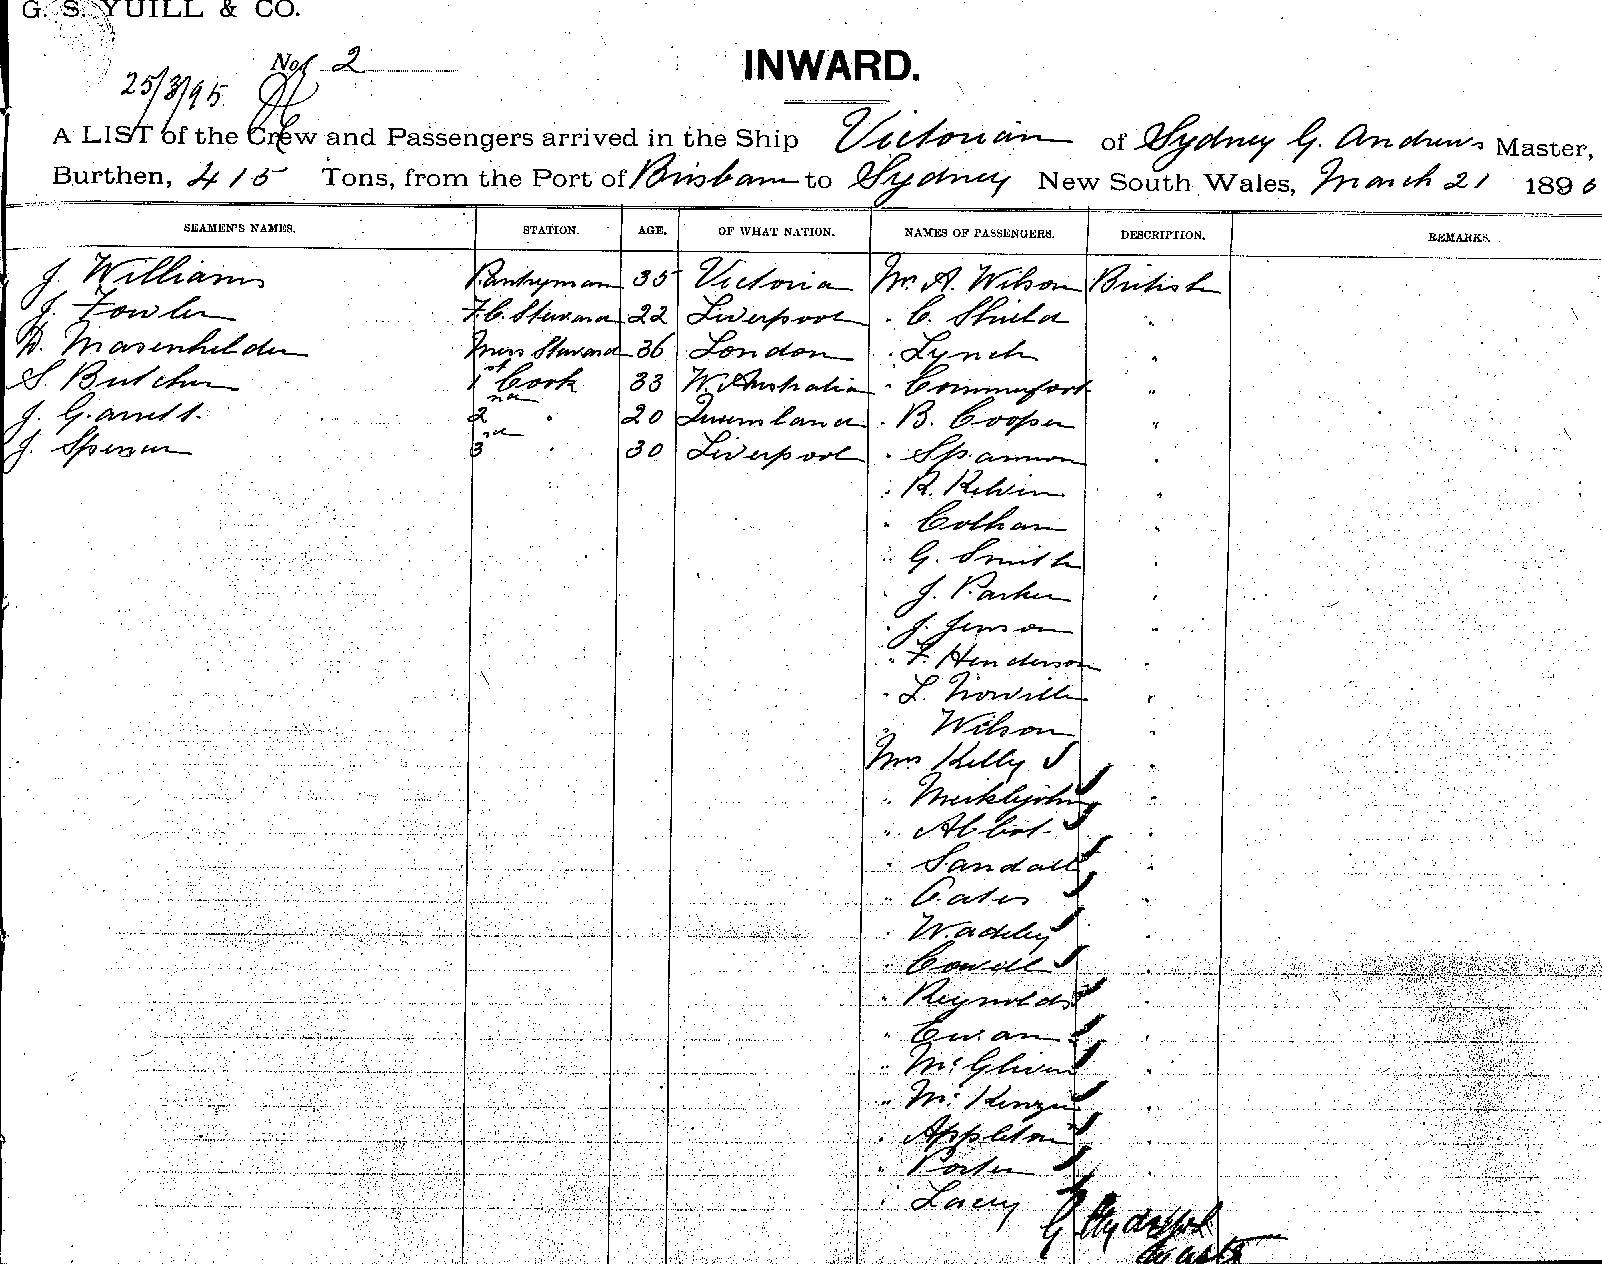 G. S. YUILL & CO.
No. 2
25/3/95
INWARD.
A LIST of the Crew and Passengers arrived in the Ship Victorian of Sydney G. Andrews Master,
Burthen, 415 Tons, from the Port of Brisbane to Sydney New South Wales, March 21 189
SEAMEN'S NAMES. STATION. AGE. OF WHAT NATION. NAMES OF PASSENGERS. DESCRIPTION. REMARKS.
J. Williams Pantryman 35 Victoria Mr. A. Wilson British
J. Fowler F.C. Steward 22 Liverpool " C. Shield "
D. Masenhelder Mess Steward 36 London " Lynch "
S. Butcher 1st Cook 33 W. Australia " Commerfort "
J. Garrett. 2nd " 20 Queensland " B. Cooper "
J. Spencer 3rd " 30 Liverpool " Spannon "
" R. Kelvin "
" Colham "
" G. Smith "
" J. Parker "
" J. Jenson "
" F. Henderson "
" L. Noville "
" Wilson "
Mrs Kelly S "
" Meiklejohn S "
" Abbot S "
" Sandall S "
" Oates S "
" Wadeley S "
" Cowell S "
" Reynolds S "
" Ewan S "
" McGlinn S "
" McKenzie S "
" Appleton S "
" Porter S "
" Lacey
Master